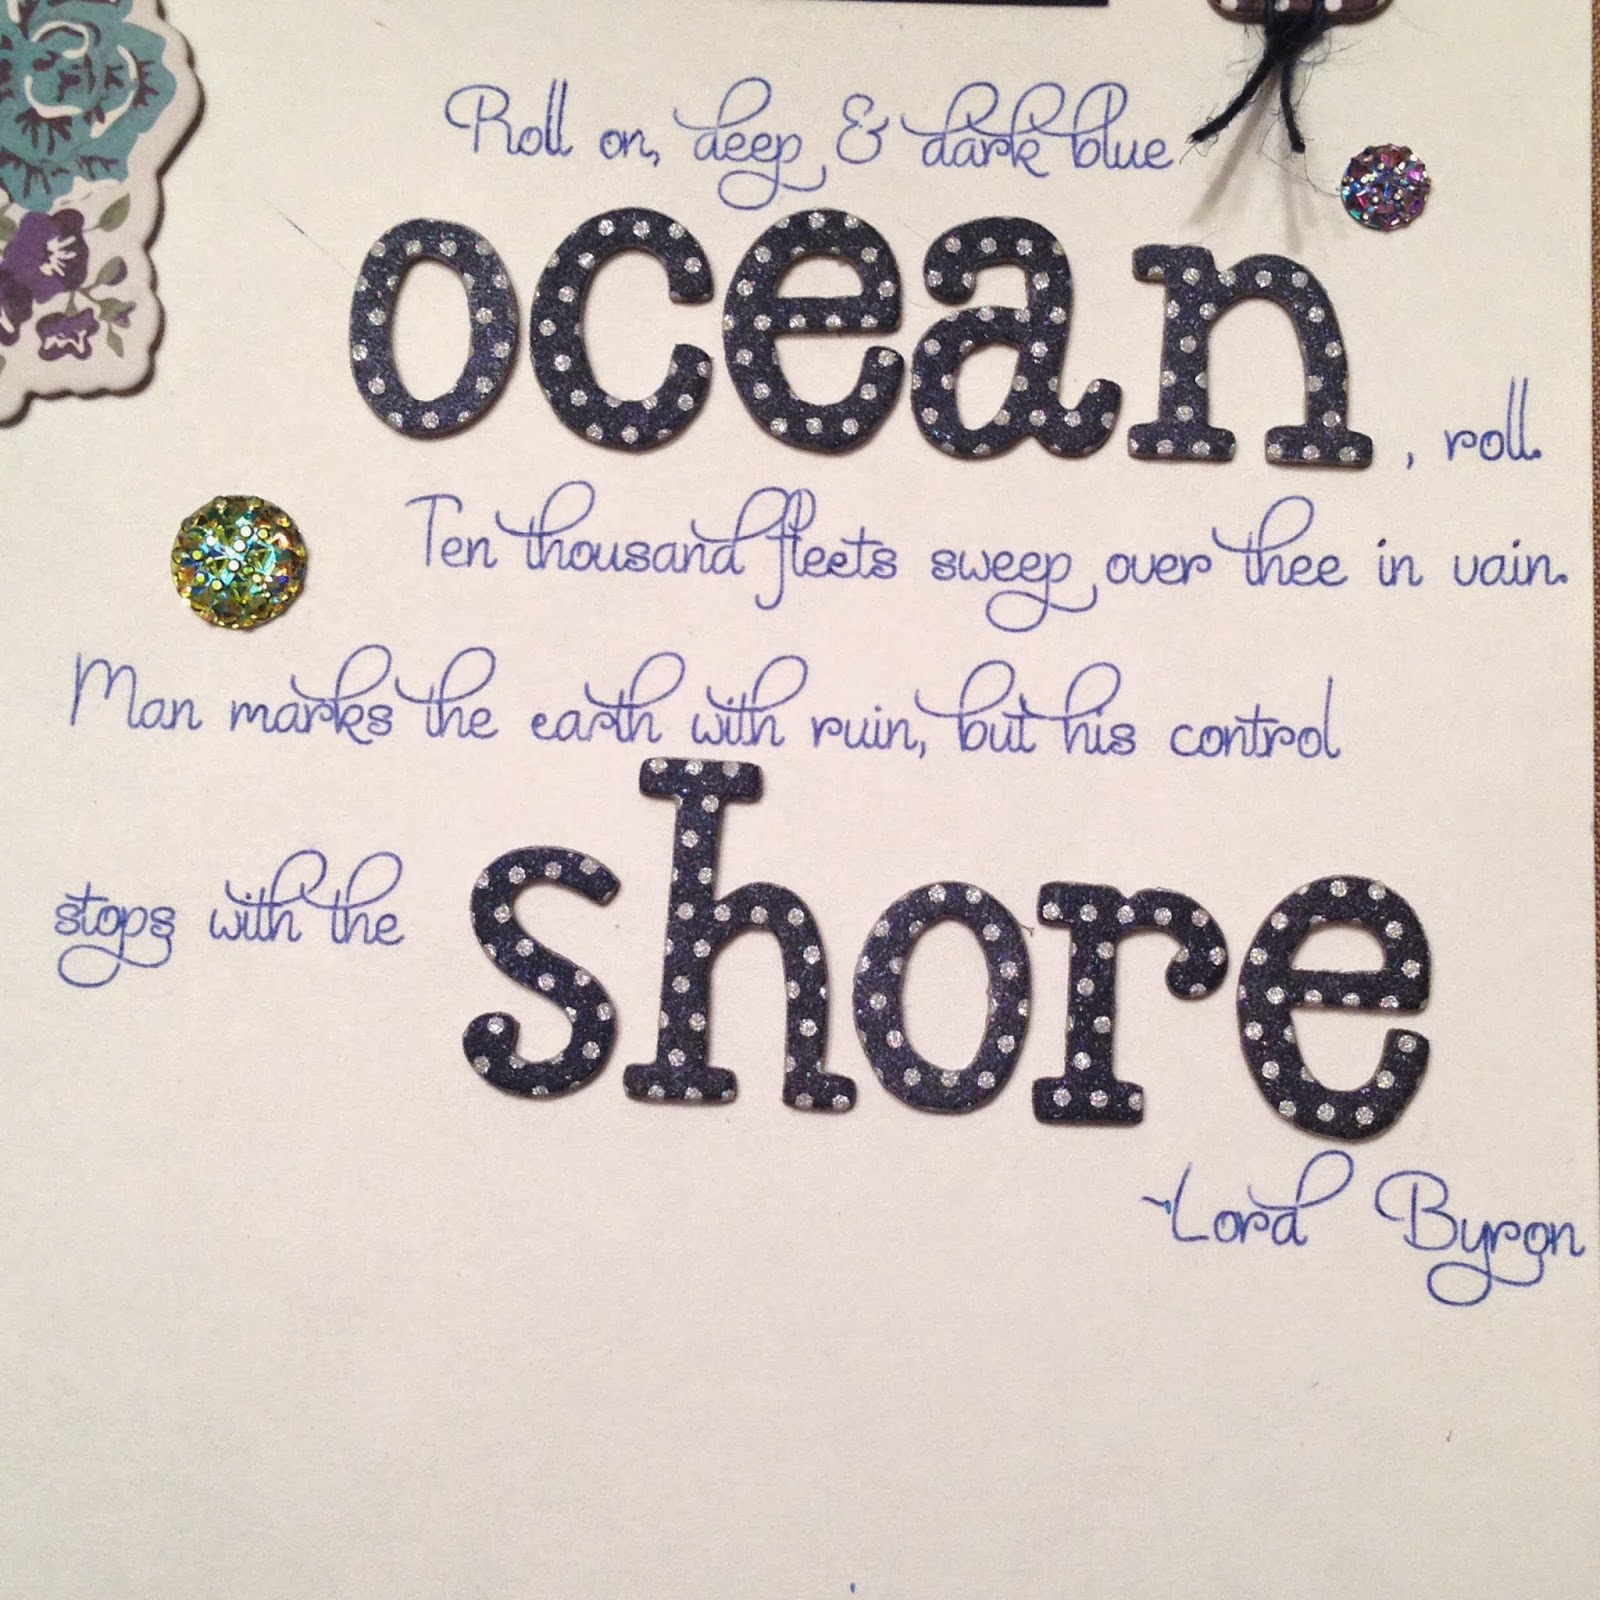 Roll on, deep & dark blue
ocean, roll.
Ten thousand fleets sweep over thee in vain.
Man marks the earth with ruin, but his control
stops with the shore
-Lord Byron